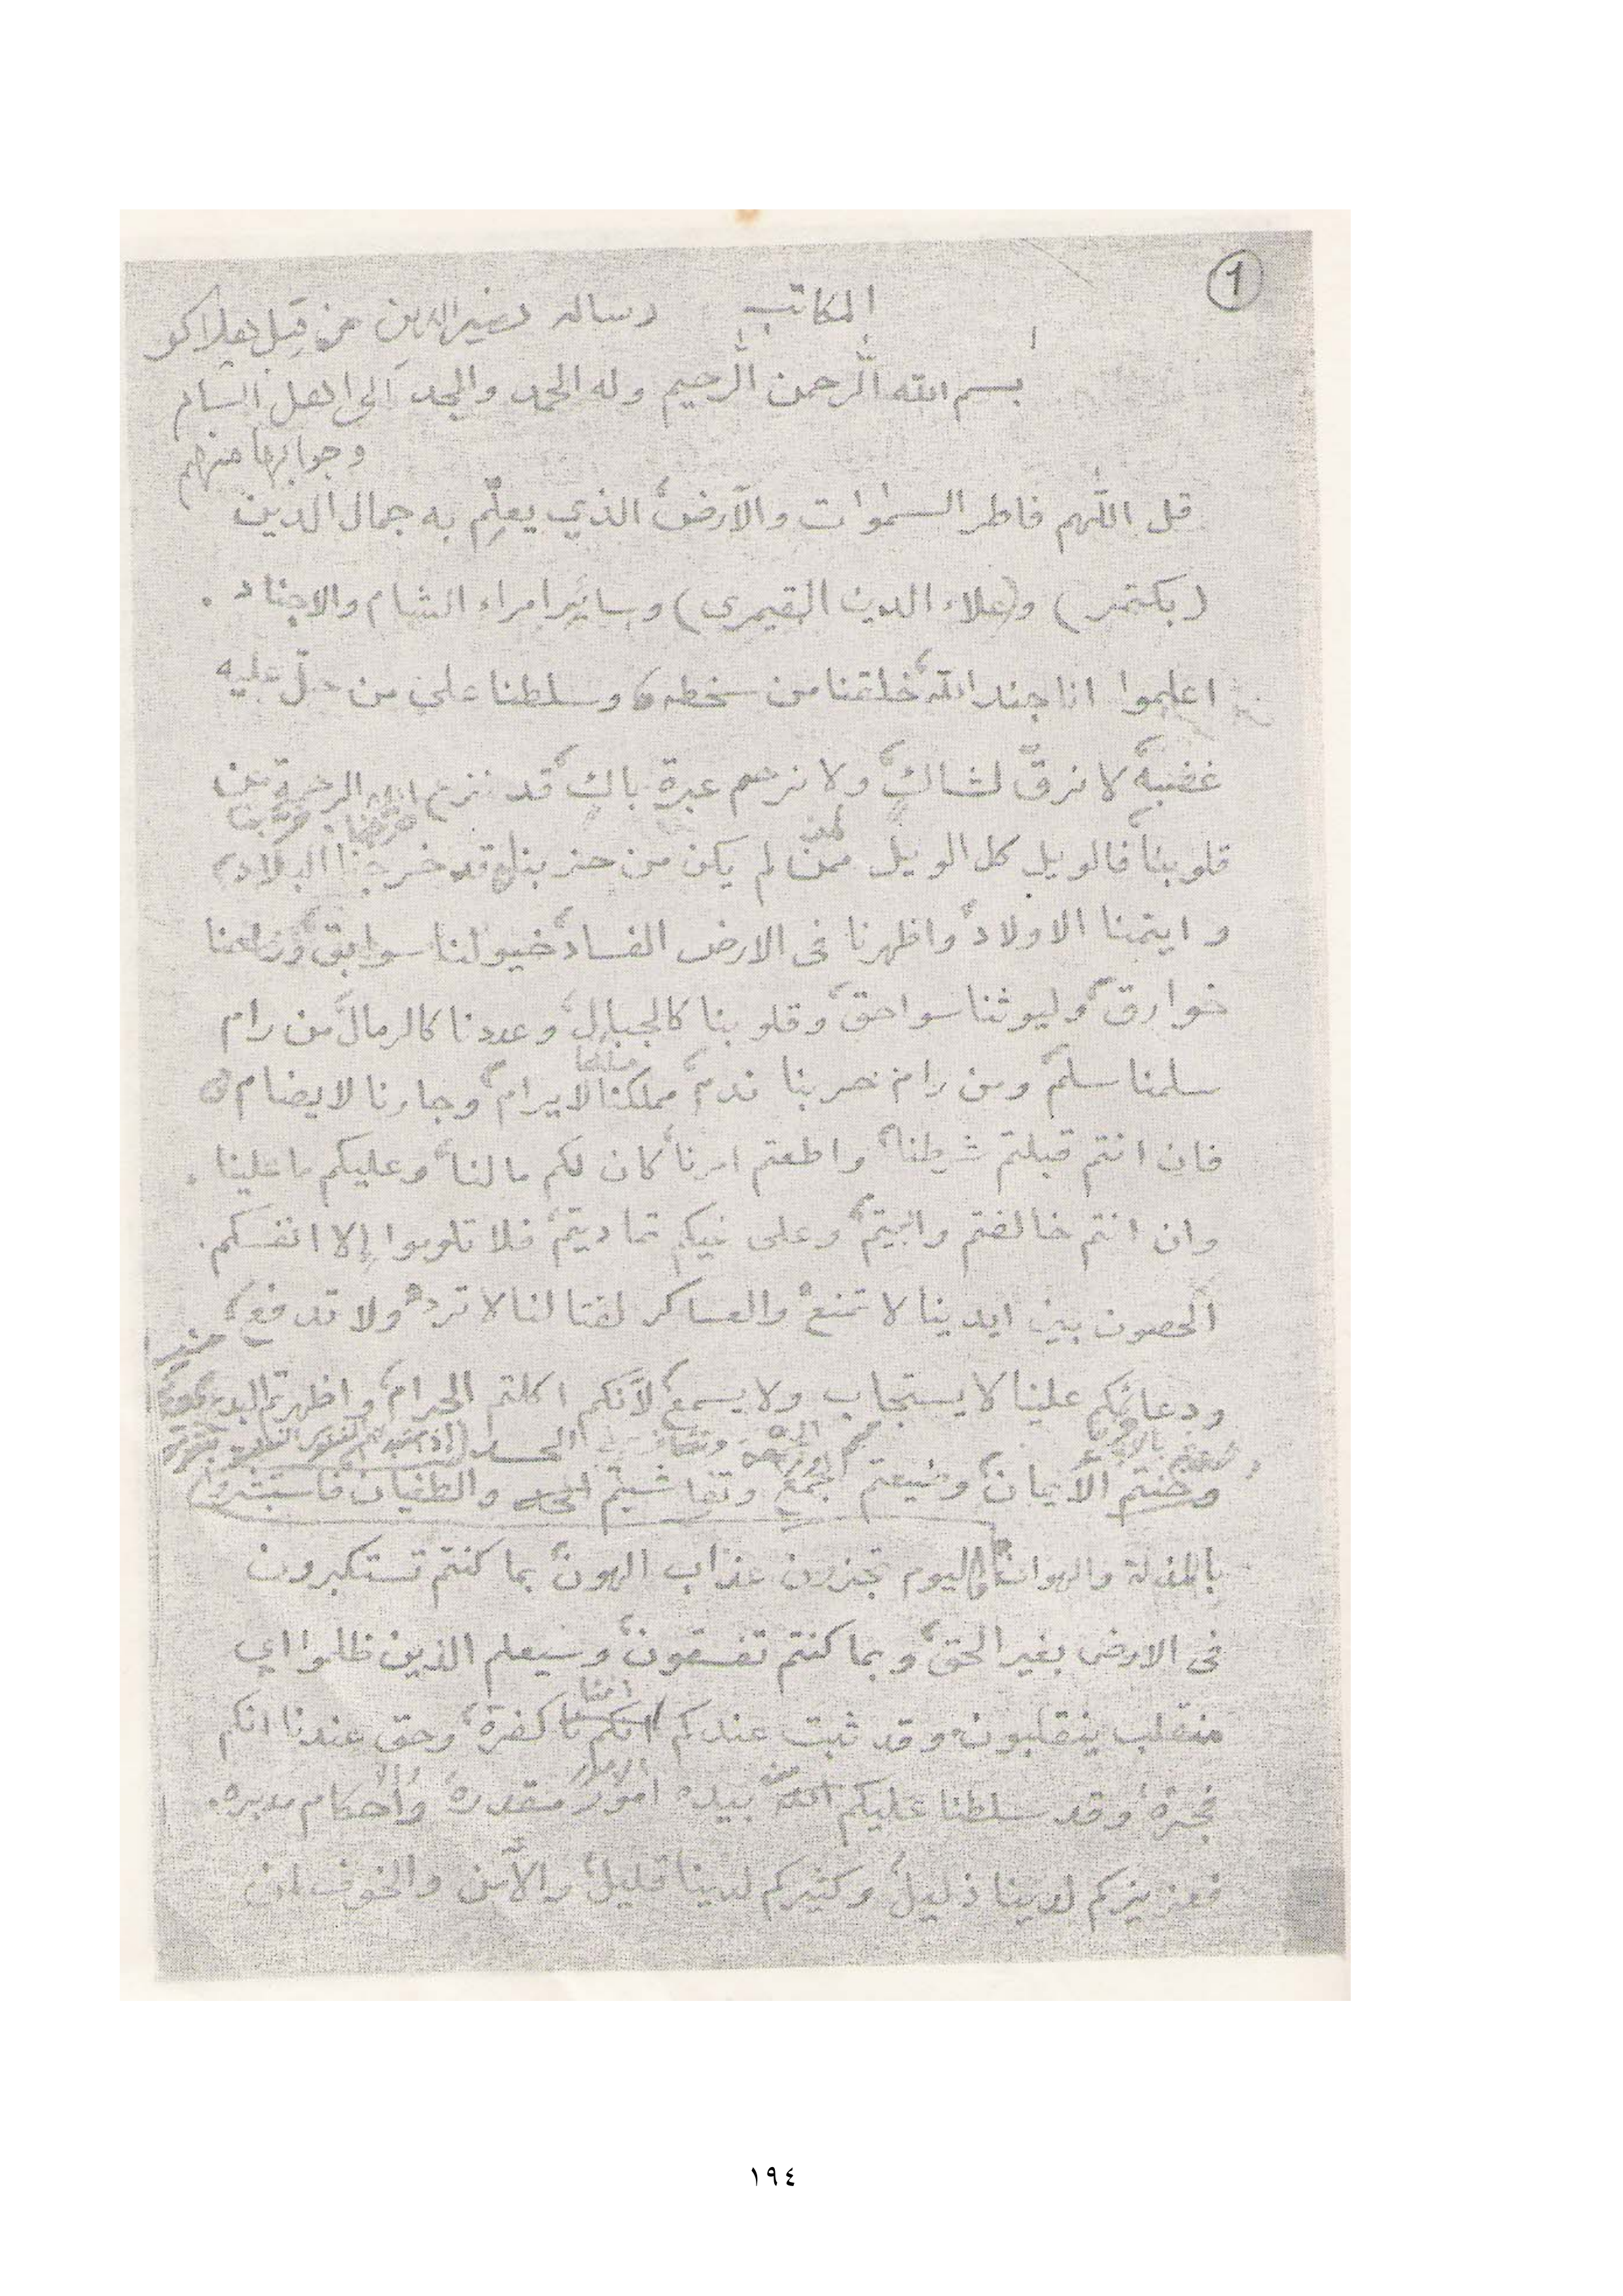 1
المكاتب رسالة نصير الدين من قبل هلاكو
بسم الله الرحمن الرحيم وله الحمد والمجد الى اهل الشام
وجوابها منهم
قل اللّهم فاطر السموات والأرض، الذي يعلم به جمال الدين
(بكتمر) و(علاء الدين القيمرى) وسائر امراء الشام والاجناد.
اعلموا انا جند الله، خلقنا من سخطه، وسلطنا على من حلّ عليه
غضبه، لا نرقّ لشاكٍ، ولا نرحم عبرة باكٍ، قد نزع الله الرحمة من
قلوبنا، فالويل كل الويل ممن لم يكن من حزبنا، قد خربنا البلاد،
وايتمنا الاولاد، واظهرنا فى الارض الفساد، خيولنا سوابق،
خوارق، وليوثنا سواحق، وقلوبنا كالجبال، وعددنا كالرمال، من رام
سلمنا سلم، ومن رام حربنا ندم، مملكتنا لا يرام، وجارنا لا يضام،
فان انتم قبلتم شرطنا، واطعتم امرنا، كان لكم ما لنا، وعليكم ما علينا.
وان انتم خالفتم وابيتم، وعلى غيكم تماديتم، فلا تلوموا إلا انفسكم.
الحصون بين ايدينا لا تمنع، والعساكر لقتالنا لا ترد، ولا تدفع،
ودعائكم علينا لا يستجاب ولا يسمع، لأنكم اكلتم الحرام، واظهرتم
الحسد
وخنتم الأيمان، وضيعتم الجمع، وتفاشيتم والطغيان، فاستبشروا
بالمذلة والهوان، فاليوم تجزون عذاب الهون، بما كنتم تستكبرون
فى الارض بغير الحق، وبما كنتم تفسقون، وسيعلم الذين ظلموا اي
منقلب ينقلبون، وقد ثبت عندكم اننا كفرة، وحق عندنا انكم
الامور
فجرة، وقد سلطنا عليكم الله، بيده امور مقدرة، وأحكام مدبره.
فعزيزكم لدينا ذليل، وكثيركم لدينا قليل، والأمن والخوف
١٩٤